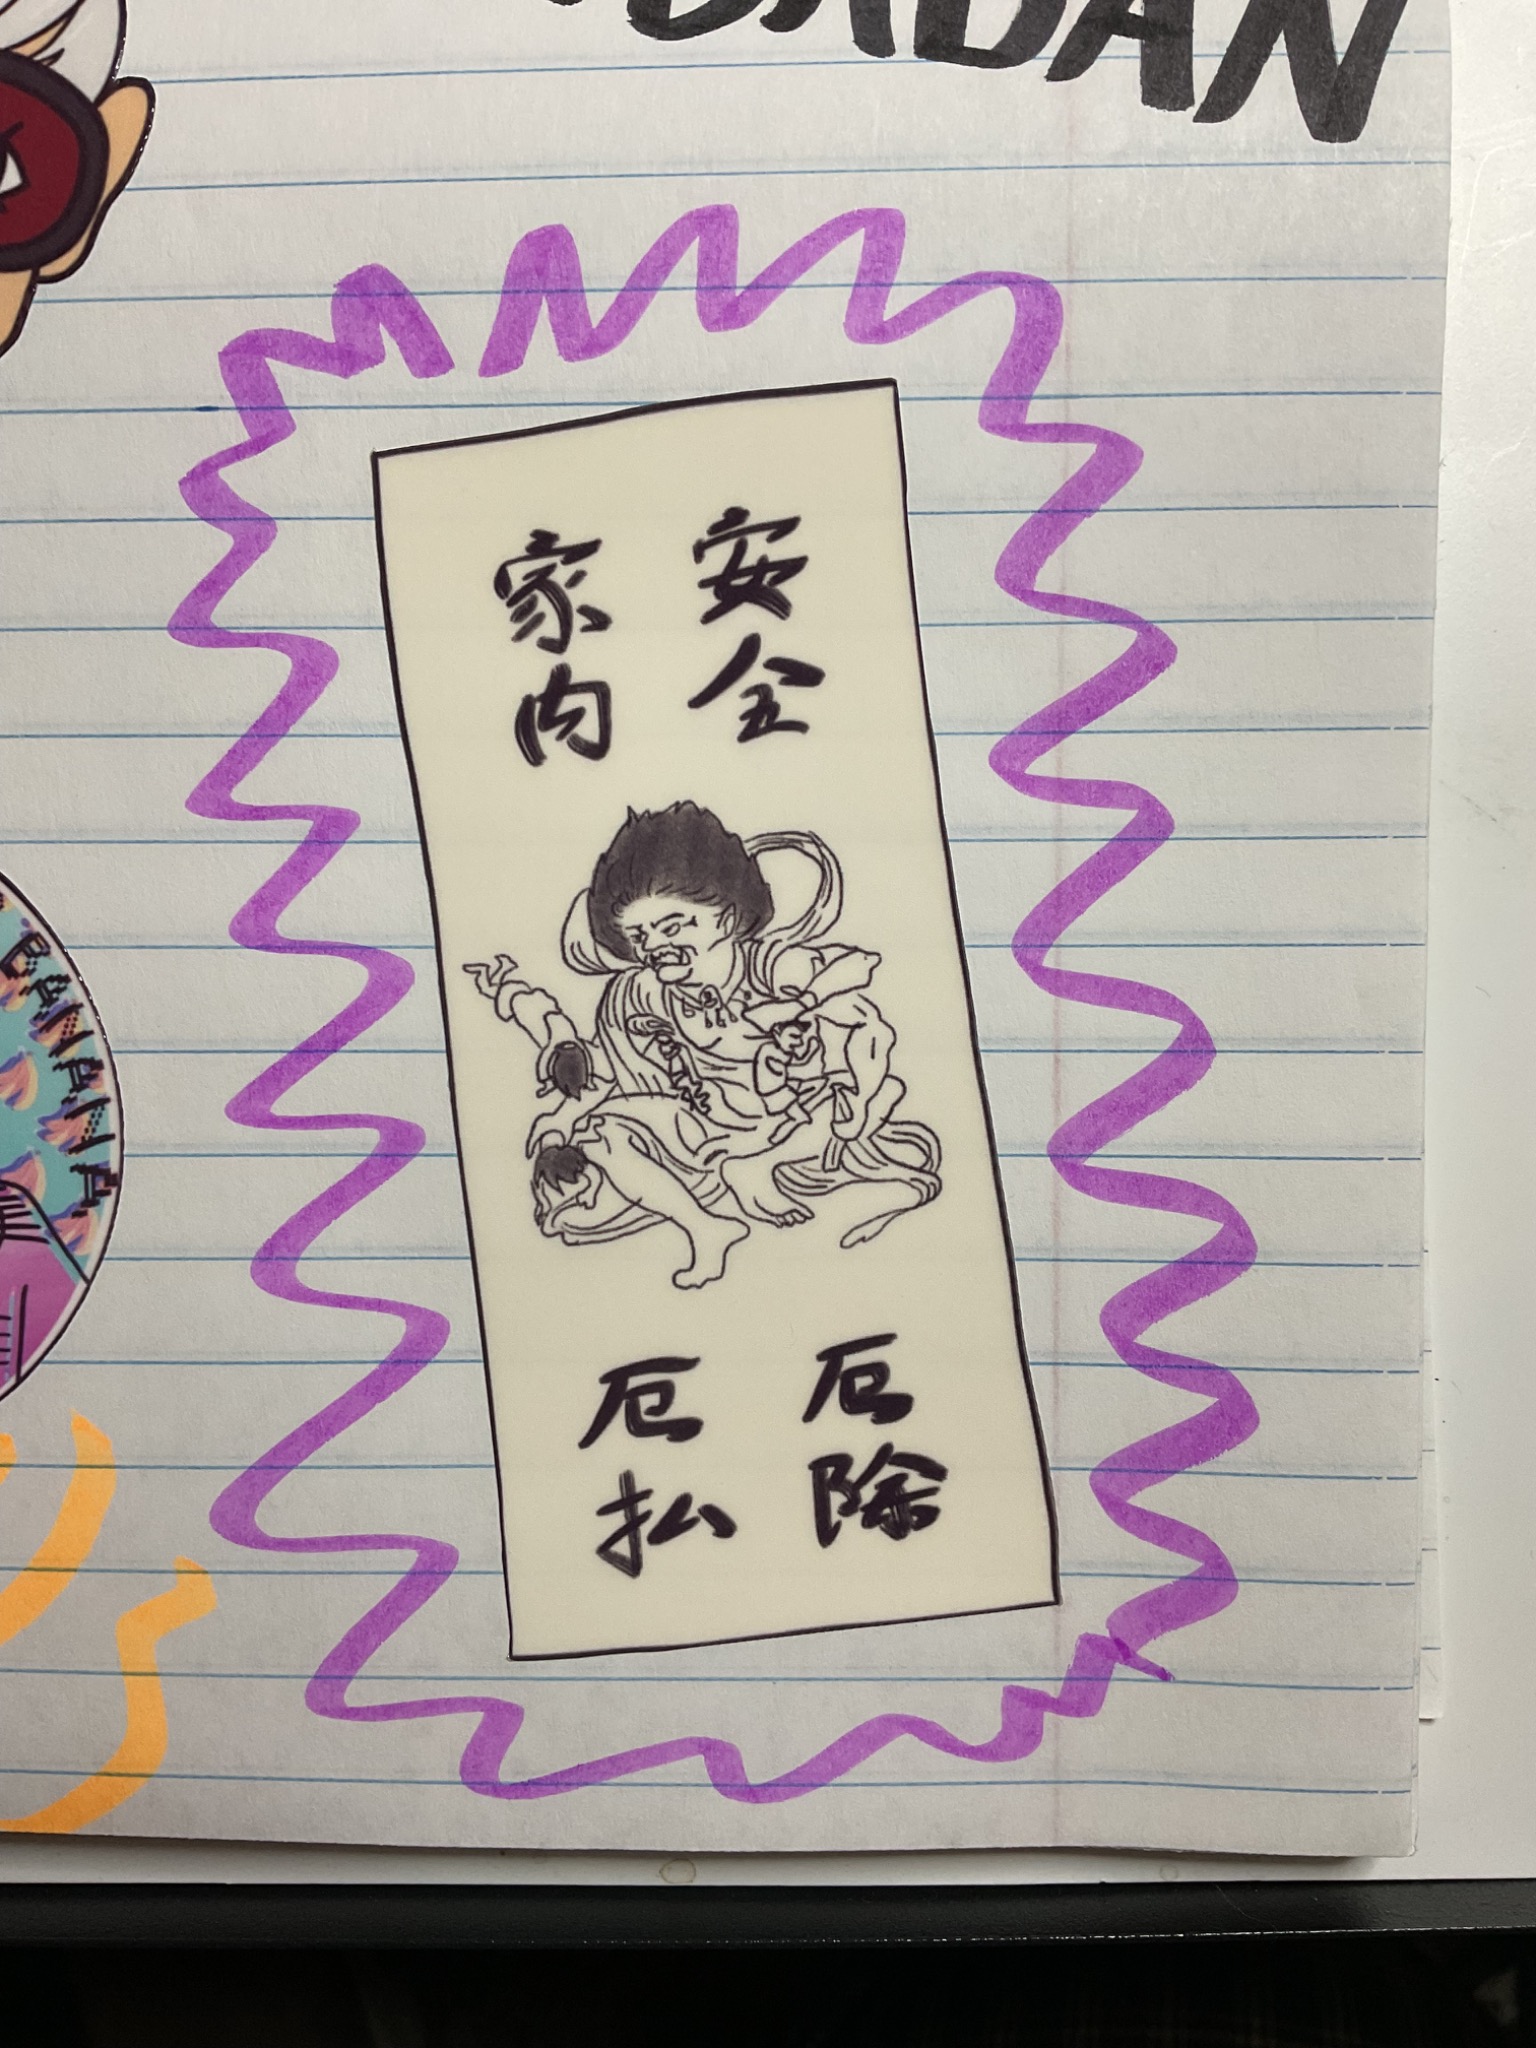 DADAN
家内
安全
厄払
厄除